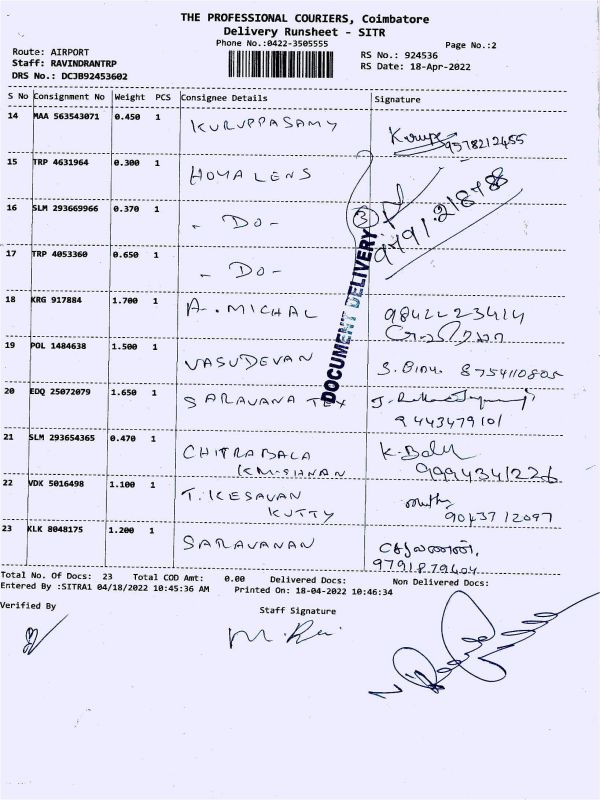 THE PROFESSIONAL COURIERS, Coimbatore
Delivery Runsheet - SITR
Phone No.:0422-3505555
Page No.:2
Route: AIRPORT
Staff: RAVINDRANTRP
DRS No.: DCJB92453602
RS No.: 924536
RS Date: 18-Apr-2022
S No Consignment No Weight PCS Consignee Details Signature
14 MAA 563543071 0.450 1 KURUPPASAMY
9578212455
15 TRP 4631964 0.300 1 HOYALENS
16 SLM 293669966 0.370 1 - DO - 3
9791218788
17 TRP 4053360 0.650 1 - DO -
DOCUMENT DELIVERY
18 KRG 917884 1.700 1 A. MICHAL 9842223414
19 POL 1484638 1.500 1 VASUDEVAN 8754110805
20 EDQ 25072079 1.650 1 SARAVANA TEX
9443479101
21 SLM 293654365 0.470 1 CHITRABALA K.Balu
KRISHNAN 9994341226
22 VDK 5016498 1.100 1 T. KESAVAN
KUTTY 9043712097
23 KLK 8048175 1.200 1 SARAVANAN
9791879404
Total No. Of Docs: 23 Total COD Amt: 0.00 Delivered Docs: Non Delivered Docs:
Entered By :SITRA1 04/18/2022 10:45:36 AM Printed On: 18-04-2022 10:46:34
Verified By Staff Signature